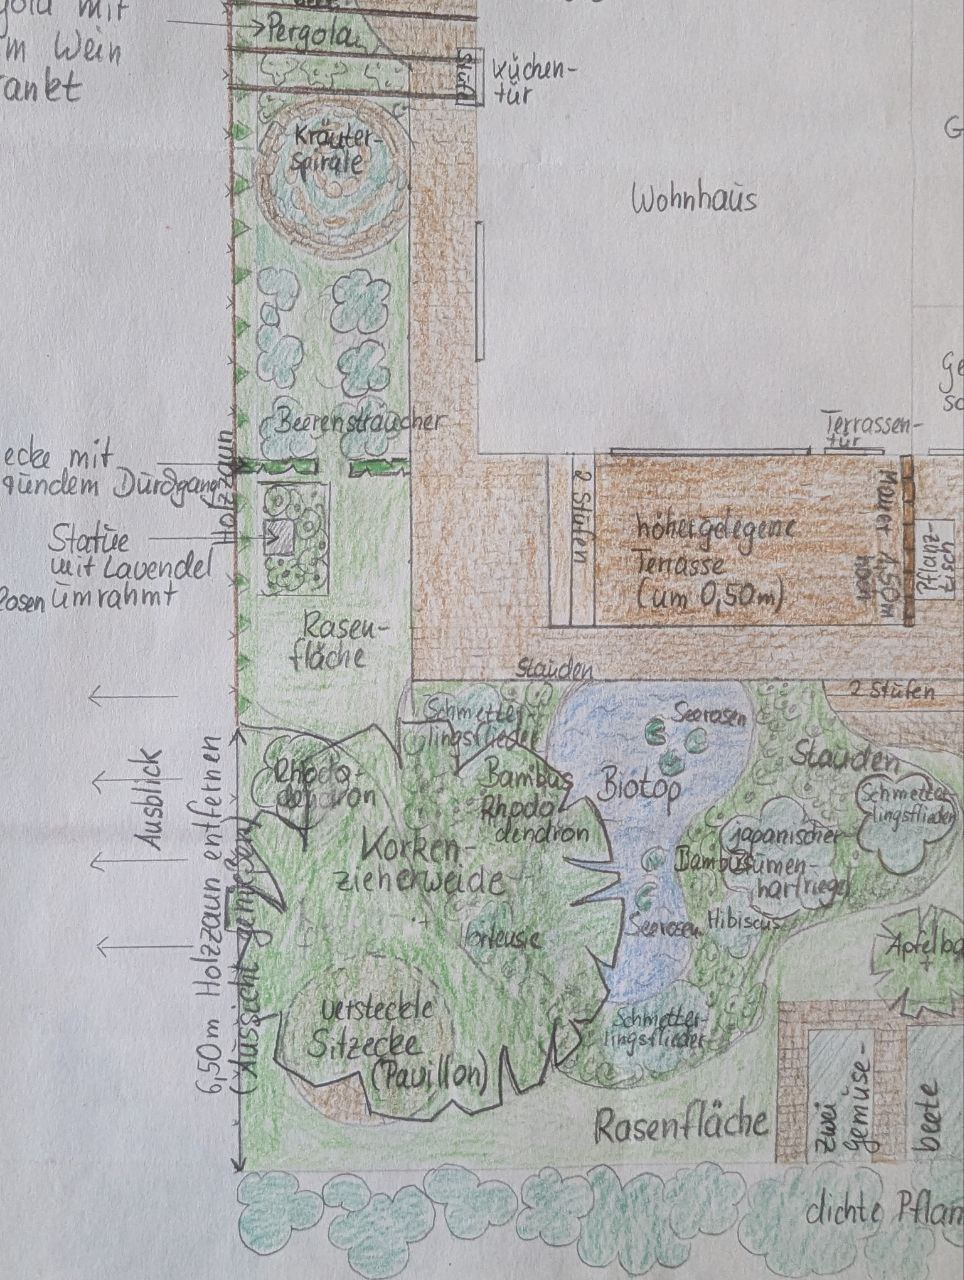 mit
m Wein
rankt
Pergola
Stufe
Küchen-
tür
Kräuter-
spirale
Wohnhaus
G
Beerensträucher
Holzzaun
ecke mit
Durchgang
Statue
mit Lavendel
Rosen umrahmt
Terrassen-
tür
2 Stufen
höhergelegene
Terrasse
(um 0,50m)
Mauer 1,50m
hoch
Pflanz-
tisch
Ge
sc
Rasen-
fläche
Stauden
2 Stufen
Schmetter-
lingsflieder
Seerosen
Stauden
Rhodo-
dendron
Bambus
Rhodo-
dendron
Biotop
Schmetter-
lingsflieder
Ausblick
6,50m Holzzaun entfernen
Korken-
zieherweide
japanischer
Bambus
Blumen-
hartriegel
Hortensie
Seerosen
Hibiscus
Apfelba
versteckte
Sitzecke
(Pavillon)
Schmetter-
lingsflieder
Rasenfläche
zwei
Gemüse-
beete
dichte Pflan